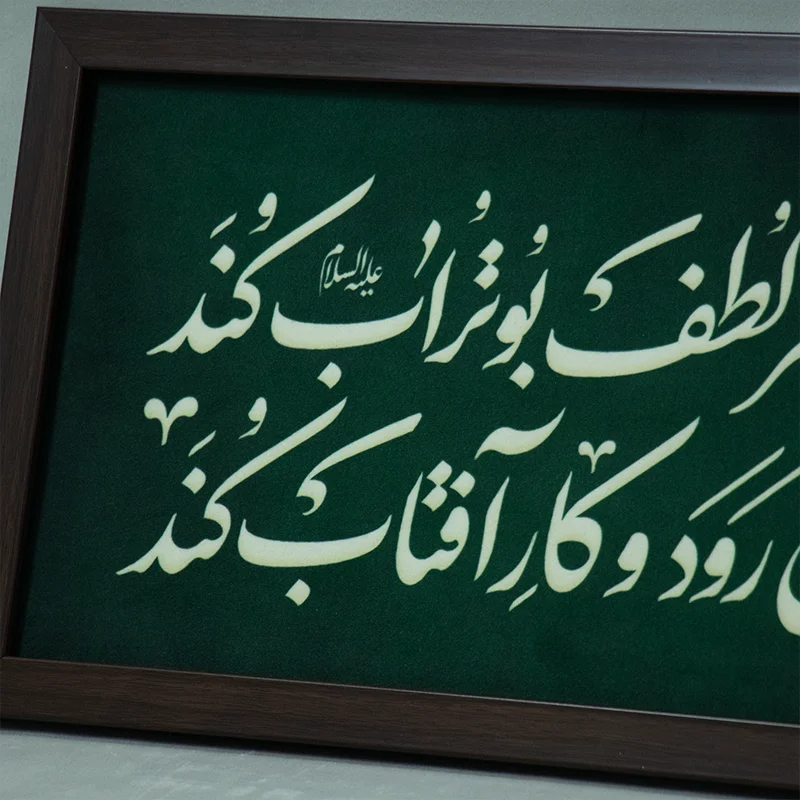 لُطف بُوتُراب علیه‌السلام کُنَد
رَوَد و کارِ آفتاب کُنَد